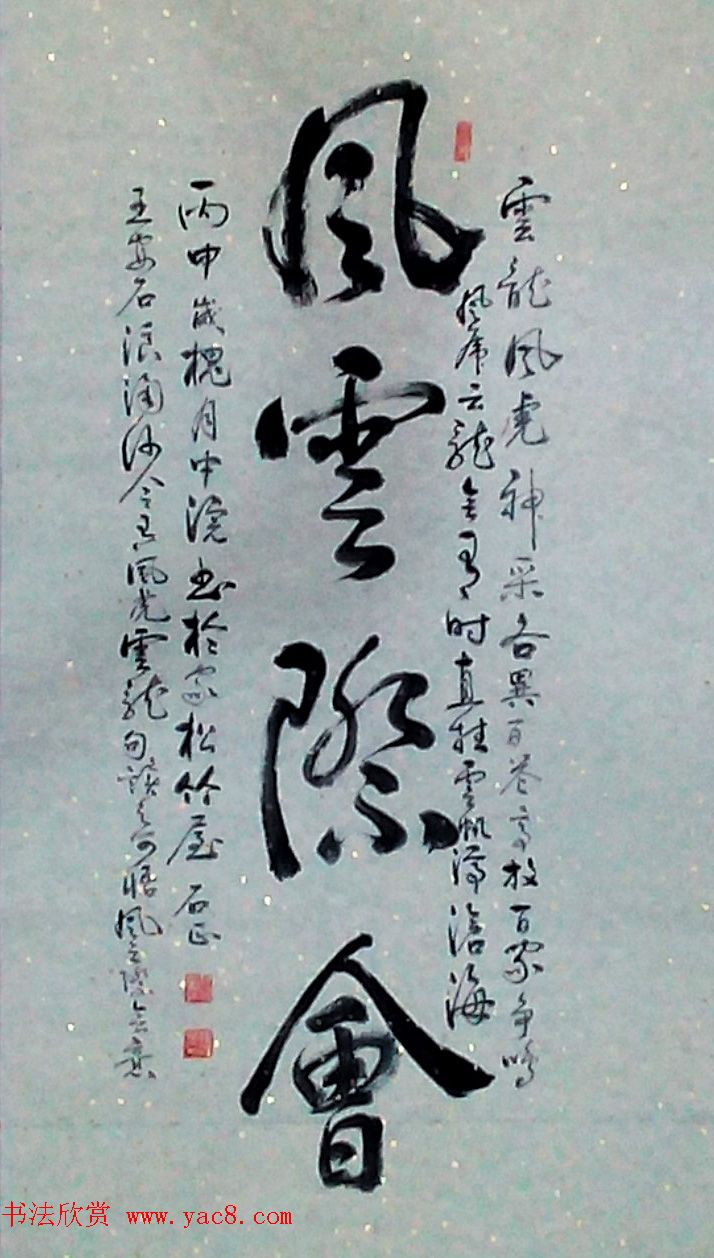 雲龍風虎神采各異百花齐放百家争鳴
風虎云龍會有时直挂雲帆濟滄海
風雲際會
丙申歲槐月中浣书於家松竹屋 石正
王安石浪淘沙令有風虎雲龍句讀之可悟風云際会意
书法欣赏 www.yac8.com